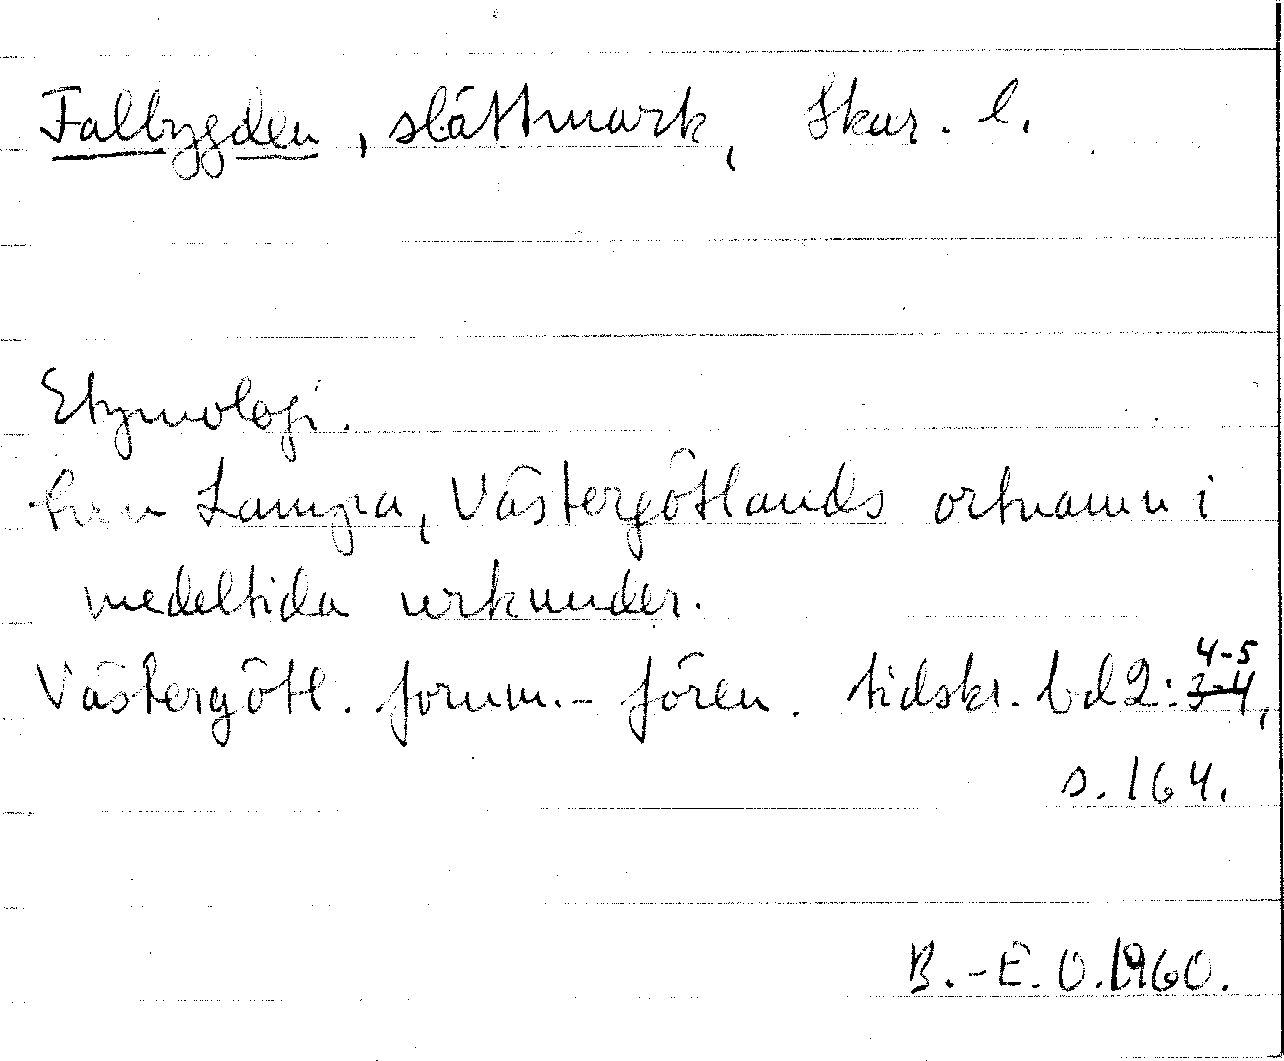 Falbygden, slättmark, Skar. l.
Etymologi.
Sven Lampa, Västergötlands ortnamn i
medeltida urkunder.
Västergötl. fornm.- fören. tidskr. bd 2: 4-5
3-4,
s. 164.
B.-E. O. 1960.